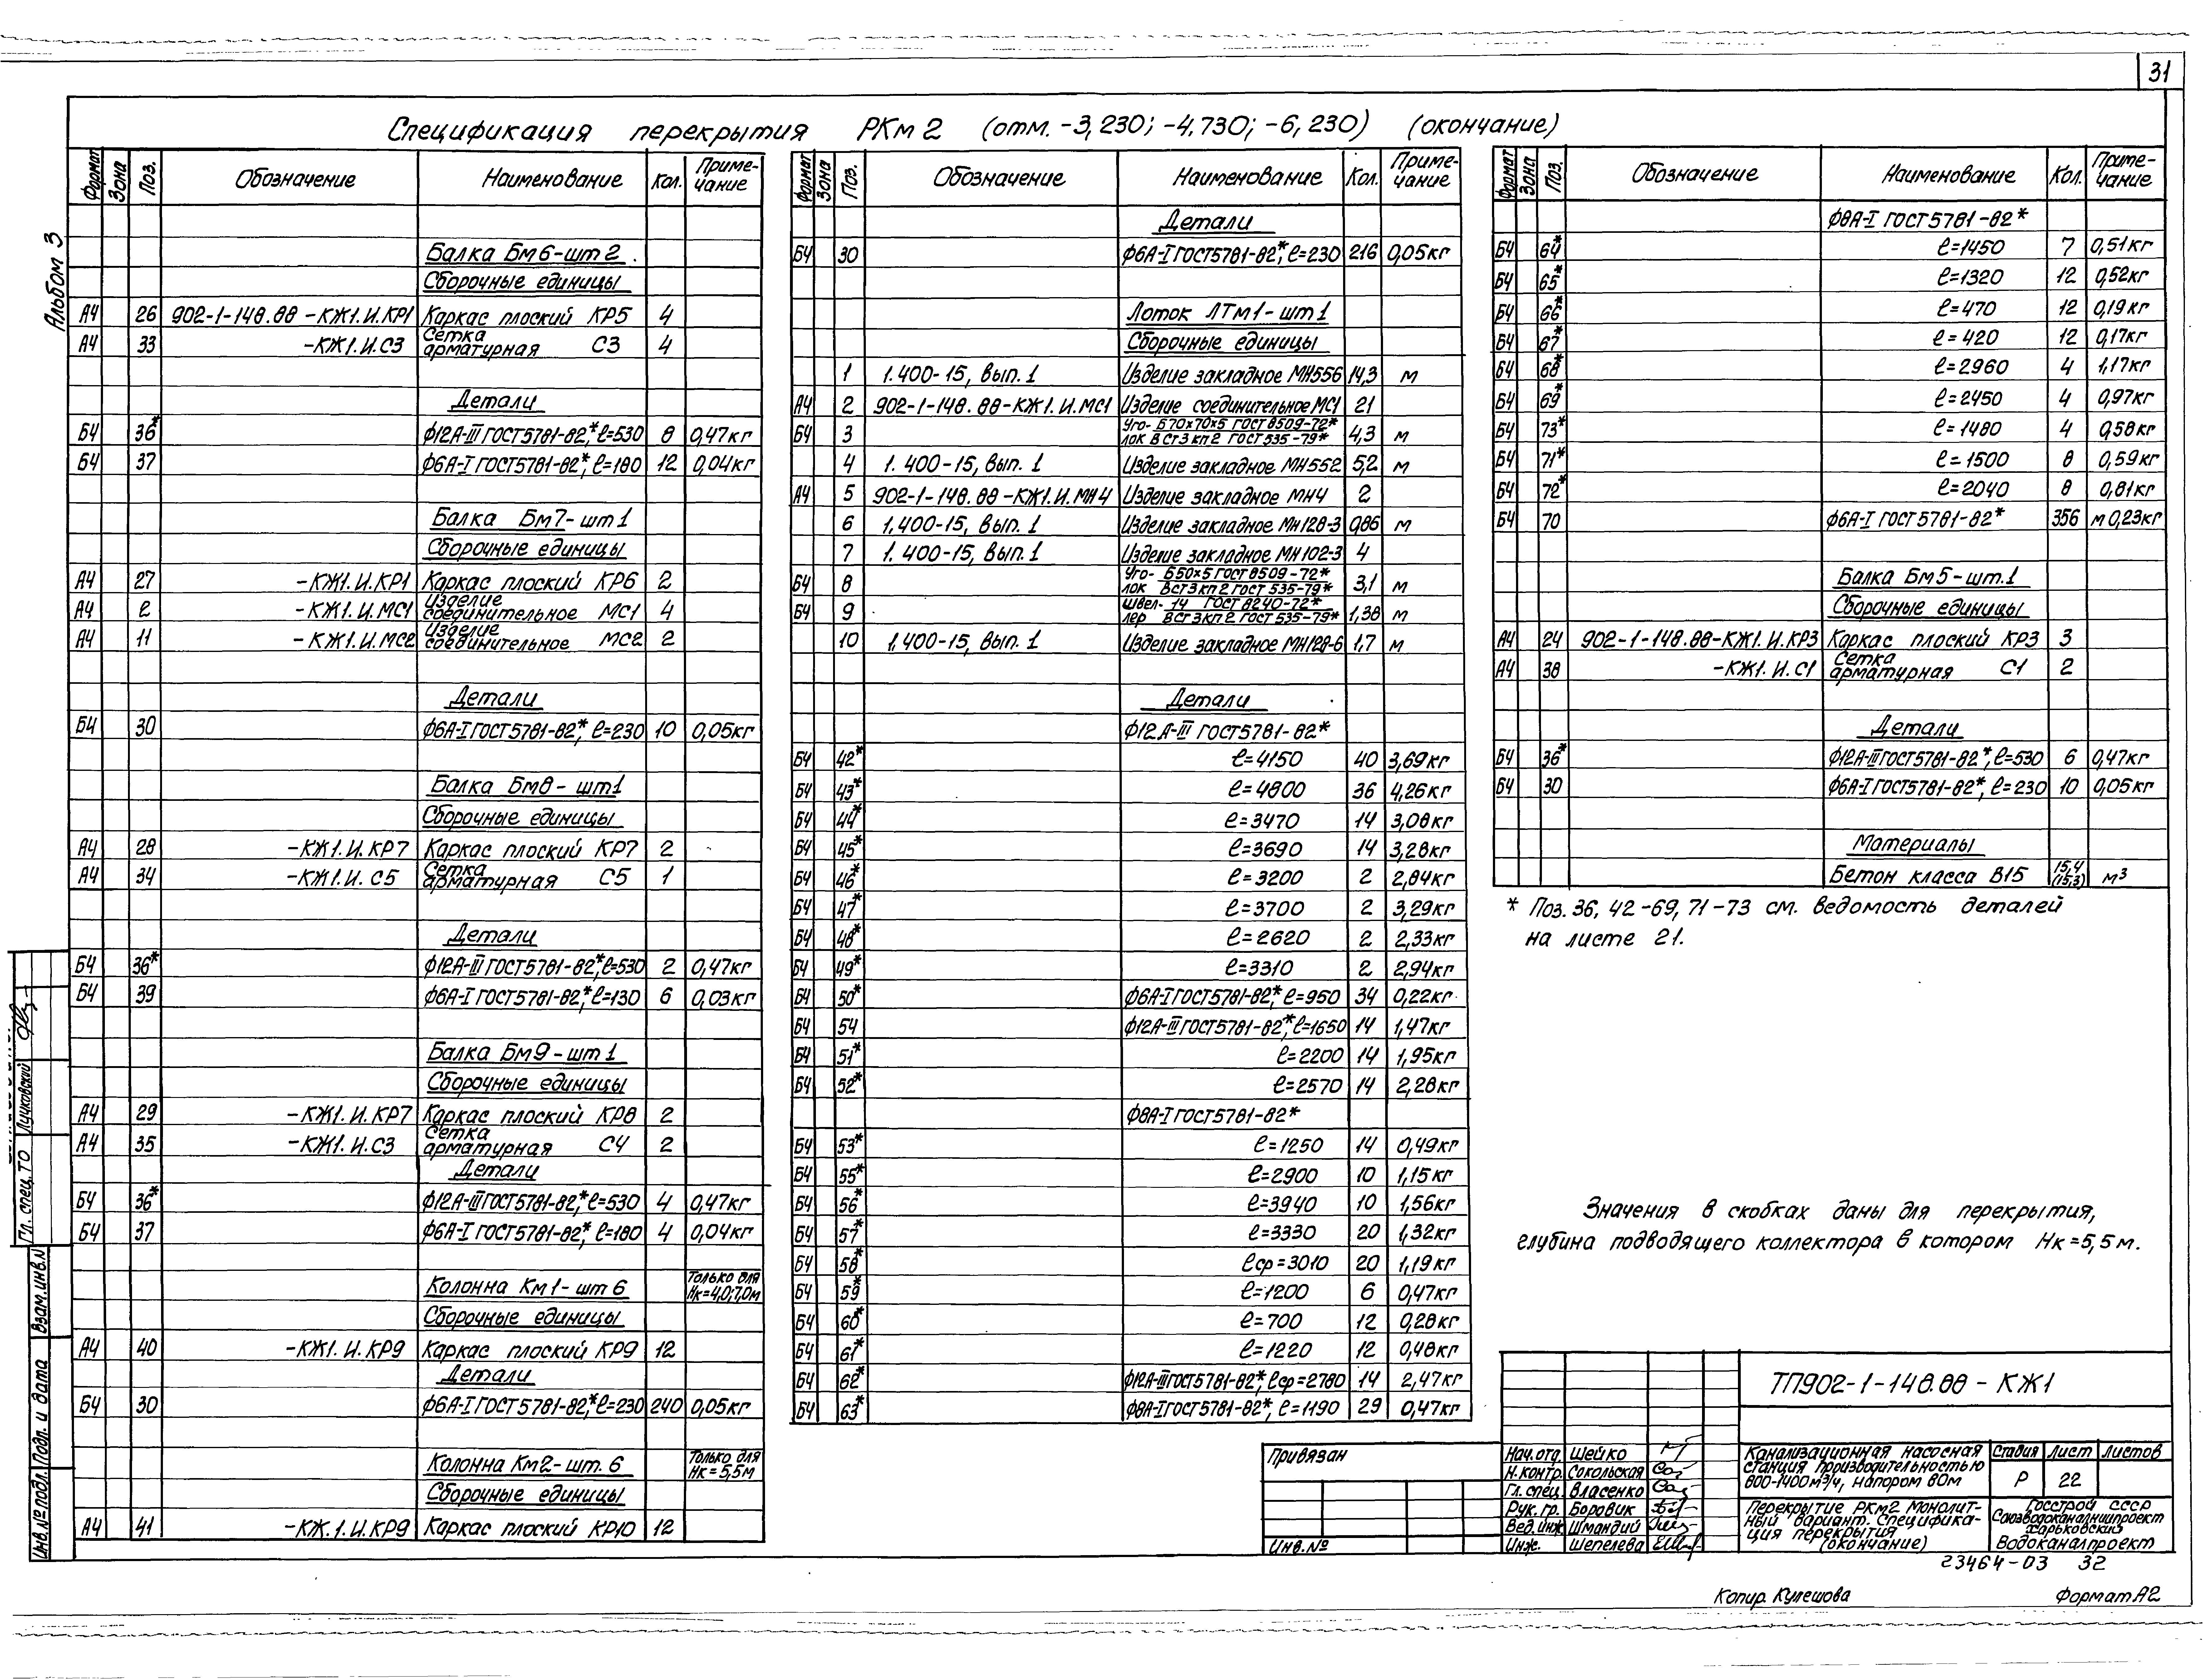 31
Альбом 3
Спецификация перекрытия РКм 2 (отм. -3,230; -4,730; -6,230) (окончание)
Формат Зона Поз. Обозначение Наименование Кол. Примечание
Балка Бм6-шт 2
Сборочные единицы
А4 26 902-1-148.88-КЖ1.И.КР1 Каркас плоский КР5 4
А4 33 -КЖ1.И.С3 Сетка арматурная С3 4
Детали
БЧ 36* Ф12А-III ГОСТ5781-82*, ℓ=530 8 0,47кг
БЧ 37 Ф6А-I ГОСТ5781-82*, ℓ=180 12 0,04кг
Балка Бм7-шт 1
Сборочные единицы
А4 27 -КЖ1.И.КР1 Каркас плоский КР6 2
А4 2 -КЖ1.И.МС1 Изделие соединительное МС1 4
А4 11 -КЖ1.И.МС2 Изделие соединительное МС2 2
Детали
БЧ 30 Ф6А-I ГОСТ5781-82*, ℓ=230 10 0,05кг
Балка Бм8-шт1
Сборочные единицы
А4 28 -КЖ1.И.КР7 Каркас плоский КР7 2
А4 34 -КЖ1.И.С5 Сетка арматурная С5 1
Детали
БЧ 36* Ф12А-III ГОСТ5781-82*, ℓ=530 2 0,47кг
БЧ 39 Ф6А-I ГОСТ5781-82*, ℓ=130 6 0,03кг
Балка Бм9-шт 1
Сборочные единицы
А4 29 -КЖ1.И.КР7 Каркас плоский КР8 2
А4 35 -КЖ1.И.С3 Сетка арматурная С4 2
Детали
БЧ 36* Ф12А-III ГОСТ5781-82*, ℓ=530 4 0,47кг
БЧ 37 Ф6А-I ГОСТ5781-82*, ℓ=180 4 0,04кг
Колонна Км1-шт 6 Только для Нк=4,0;7,0м
Сборочные единицы
А4 40 -КЖ1.И.КР9 Каркас плоский КР9 12
Детали
БЧ 30 Ф6А-I ГОСТ5781-82*, ℓ=230 240 0,05кг
Колонна Км2-шт. 6 Только для Нк=5,5м
Сборочные единицы
А4 41 -КЖ.1.И.КР9 Каркас плоский КР10 12
Формат Зона Поз. Обозначение Наименование Кол. Примечание
Детали
БЧ 30 Ф6А-I ГОСТ5781-82*, ℓ=230 216 0,05кг
Лоток ЛТм1-шт 1
Сборочные единицы
1 1.400-15, вып.1 Изделие закладное МН556 14,3 м
А4 2 902-1-148.88-КЖ1.И.МС1 Изделие соединительное МС1 21
БЧ 3 Уголок Б70х70х5 ГОСТ 8509-72* ВСт3кп2 ГОСТ 535-79* 4,3 м
4 1.400-15, вып. 1 Изделие закладное МН552 5,2 м
А4 5 902-1-148.88-КЖ1.И.МН4 Изделие закладное МН4 2
6 1.400-15, вып. 1 Изделие закладное МН128-3 0,86 м
7 1.400-15, вып. 1 Изделие закладное МН102-3 4
БЧ 8 Уголок Б50х5 ГОСТ 8509-72* ВСт3кп2 ГОСТ 535-79* 3,1 м
БЧ 9 Швеллер 14 ГОСТ 8240-72* ВСт3кп2 ГОСТ 535-79* 1,38 м
10 1.400-15, вып. 1 Изделие закладное МН128-6 1,7 м
Детали
Ф12А-III ГОСТ5781-82*
БЧ 42* ℓ=4150 40 3,69кг
БЧ 43* ℓ=4800 36 4,26кг
БЧ 44* ℓ=3470 14 3,08кг
БЧ 45* ℓ=3690 14 3,28кг
БЧ 46* ℓ=3200 2 2,84кг
БЧ 47* ℓ=3700 2 3,29кг
БЧ 48* ℓ=2620 2 2,33кг
БЧ 49* ℓ=3310 2 2,94кг
БЧ 50* Ф6А-I ГОСТ5781-82*, ℓ=950 34 0,22кг
БЧ 54 Ф12А-III ГОСТ5781-82*, ℓ=1650 14 1,47кг
БЧ 51* ℓ=2200 14 1,95кг
БЧ 52* ℓ=2570 14 2,28кг
Ф8А-I ГОСТ5781-82*
БЧ 53* ℓ=1250 14 0,49кг
БЧ 55* ℓ=2900 10 1,15кг
БЧ 56* ℓ=3940 10 1,56кг
БЧ 57* ℓ=3330 20 1,32кг
БЧ 58* ℓср=3010 20 1,19кг
БЧ 59* ℓ=1200 6 0,47кг
БЧ 60* ℓ=700 12 0,28кг
БЧ 61* ℓ=1220 12 0,48кг
БЧ 62* Ф12А-III ГОСТ5781-82*, ℓср=2780 14 2,47кг
БЧ 63* Ф8А-I ГОСТ5781-82*, ℓ=1190 29 0,47кг
Формат Зона Поз. Обозначение Наименование Кол. Примечание
Ф8А-I ГОСТ5781-82*
БЧ 64* ℓ=1450 7 0,51кг
БЧ 65* ℓ=1320 12 0,52кг
БЧ 66* ℓ=470 12 0,19кг
БЧ 67* ℓ=420 12 0,17кг
БЧ 68* ℓ=2960 4 1,17кг
БЧ 69* ℓ=2450 4 0,97кг
БЧ 73* ℓ=1480 4 0,58кг
БЧ 71* ℓ=1500 8 0,59кг
БЧ 72* ℓ=2040 8 0,81кг
БЧ 70 Ф6А-I ГОСТ5781-82* 356 м 0,23кг
Балка Бм5-шт.1
Сборочные единицы
А4 24 902-1-148.88-КЖ1.И.КР3 Каркас плоский КР3 3
А4 38 -КЖ1.И.С1 Сетка арматурная С1 2
Детали
БЧ 36* Ф12А-III ГОСТ5781-82*, ℓ=530 6 0,47кг
БЧ 30 Ф6А-I ГОСТ5781-82*, ℓ=230 10 0,05кг
Материалы
Бетон класса В15 15,4 (15,3) м³
* Поз. 36, 42-69, 71-73 см. ведомость деталей
на листе 21.
Значения в скобках даны для перекрытия,
глубина подводящего коллектора в котором Нк=5,5м.
Гл. спец. ТО Лучковский
Взам.инв.N
Подп. и дата
Инв.№ подл.
Привязан
Инв.№
ТП902-1-148.88-КЖ1
Нач.отд. Шейко
Н.контр. Сокольская
Гл. спец. Власенко
Рук. гр. Боровик
Вед.инж. Шмандий
Инж. Шепелева
Канализационная насосная
станция производительностью
800-1400м³/ч, напором 80м
Стадия Лист Листов
Р 22
Перекрытие РКм2 Монолит-
ный вариант. Специфика-
ция перекрытия
(окончание)
Госстрой СССР
Союзводоканалниипроект
Харьковский
Водоканалпроект
23464-03 32
Копир. Кулешова Формат А2